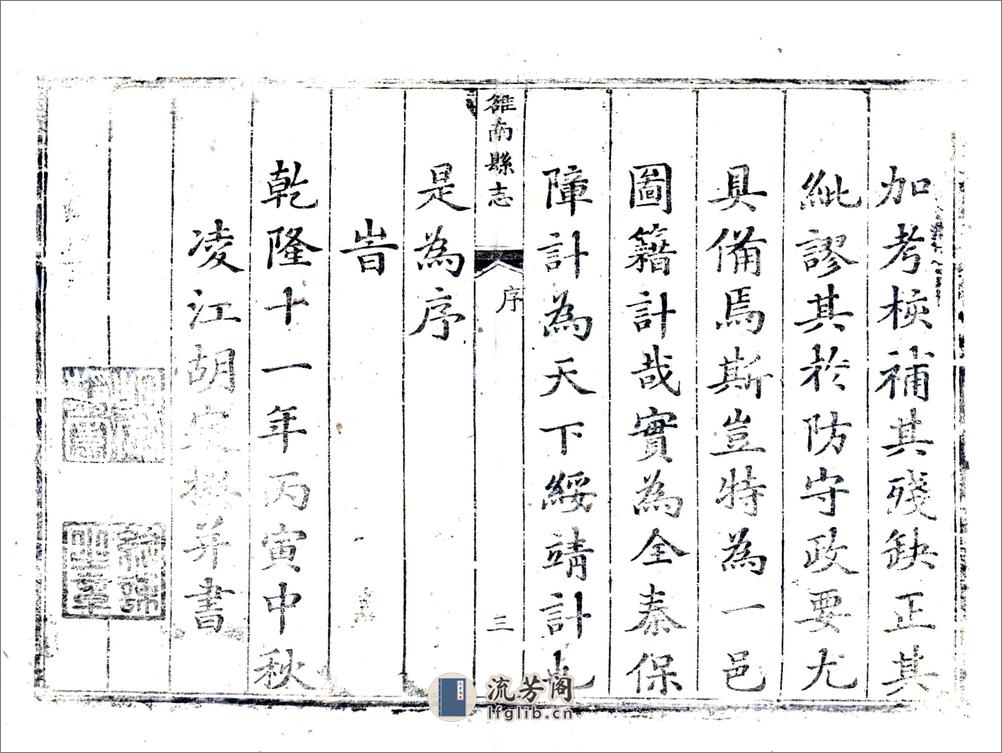 加考核補其殘缺正其
紕謬其於防守政要尤
具備焉斯豈特為一邑
圖籍計哉實為全秦保
障計為天下綏靖計也
雒南縣志
序
三
是為序
旹
乾隆十一年丙寅中秋
凌江胡撰并書
流芳阁
lfglib.cn